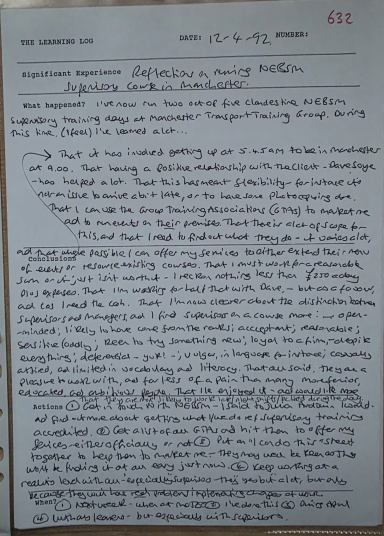 632
THE LEARNING LOG DATE: 12-4-92 NUMBER:
Significant Experience Reflections on running NEBSM
Supervisory Course in Manchester.
What happened? I've now run two out of five NEBSM
Supervisory training days at Manchester Transport Training Group. During
this time, (I feel) I've learned a lot...
That it has involved getting up at 5.45am to be in Manchester
at 9.00. That having a positive relationship with the Client - Dave
- has helped a lot. That this has meant flexibility - for instance it's
not an issue to arrive a bit late, or to have some photocopying done.
That I can use the Group Training Associations (GTAs) to market me
and to run events on their premises. That there is a lot of scope for
this, and that I need to find out what they do - it varies a lot,
and that where possible I can offer my services to either extend their menu
Conclusions
of events or resource existing courses. That I must work for a reasonable
sum or it's just not worth it - I reckon nothing less than £250 a day
plus expenses. That I'm working for half that with Dave, - but as a favour,
and (as) I need the cash. That I'm now clearer about the distinction between
supervisors and managers, and I find supervisors on a course more :- open-
minded; likely to have come from the ranks; acceptant; reasonable;
sensitive (oddly); keen to try something new; loyal to a firm, despite
everything; deferential - yuk! -; vulgar, in language for instance; casually
attired, and limited in vocabulary and literacy. That all said, they are a
pleasure to work with, and far less of a pain than many more senior,
educated, and ambitious people. That I've enjoyed it - and would like more
Actions ① Get in touch with NEBSM - I said to Julia that I would -
and find out more about getting what I've done supervisory training
accredited. ② Get a list of all GTAs and hit them to offer my
services - either officially or not ③ Put an "I can do this" sheet
together to help them to market me - They may well be keen as they
won't be finding it at all easy just now. ④ Keep working at a
level with all - especially supervisors - this not a bit a lot, but only
because they will have real problems implementing changes at work.
When? ① Next week - when at
④ With all learners - but especially with supervisors.